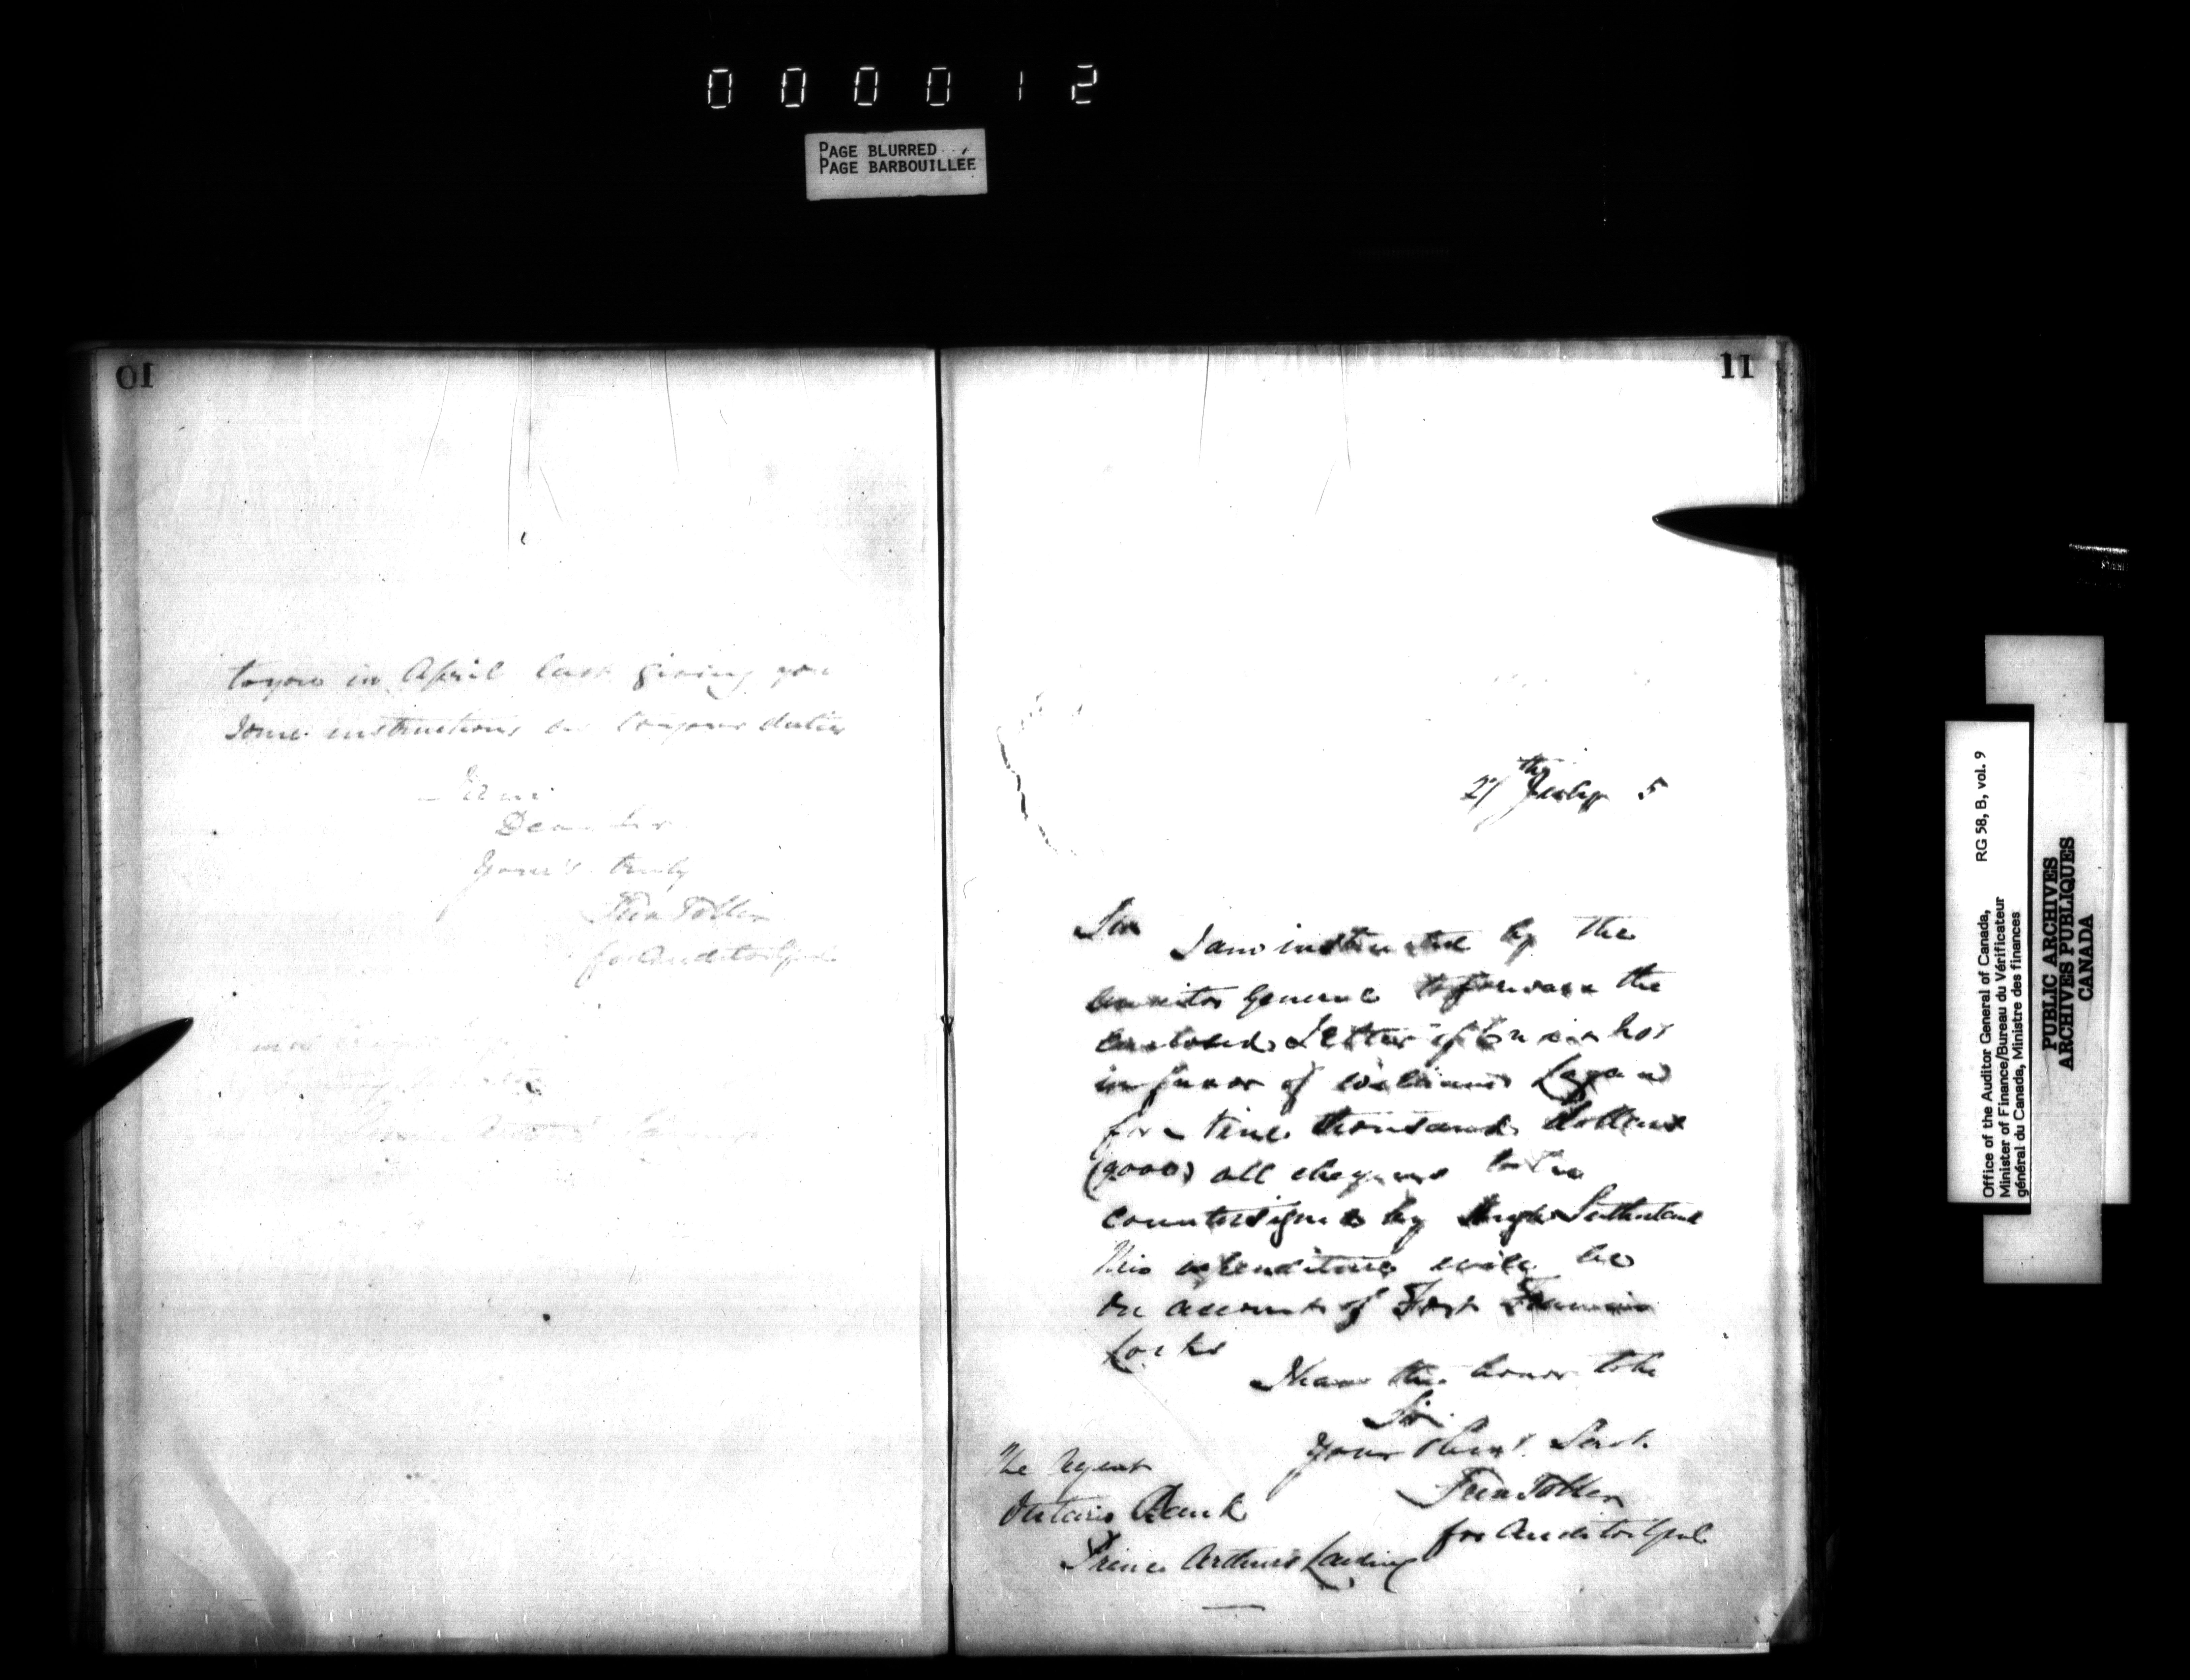 000012
PAGE BLURRED
PAGE BARBOUILLÉE
10
to you in April last giving you
some instructions as to your duties
I am
Dear Sir
Your's truly
Fred Toller
for Auditor Genl
Prince Arthur's Landing
11
27th July 5
Sir
I am instructed by the
Auditor General to forward the
enclosed Letter of Credit No
in favor of William Logan
for nine thousand dollars
(9000) all cheques to be
countersigned by Hugh Sutherland
This expenditure will be
on account of Fort Francis
Locks
I have the honor to be
Sir
Your Obedt. Servt.
Fred Toller
for Auditor Genl
The Agent
Ontario Bank
Prince Arthurs Landing
Office of the Auditor General of Canada, RG 58, B, vol. 9
Minister of Finance/Bureau du Vérificateur
général du Canada, Ministre des finances
PUBLIC ARCHIVES
ARCHIVES PUBLIQUES
CANADA